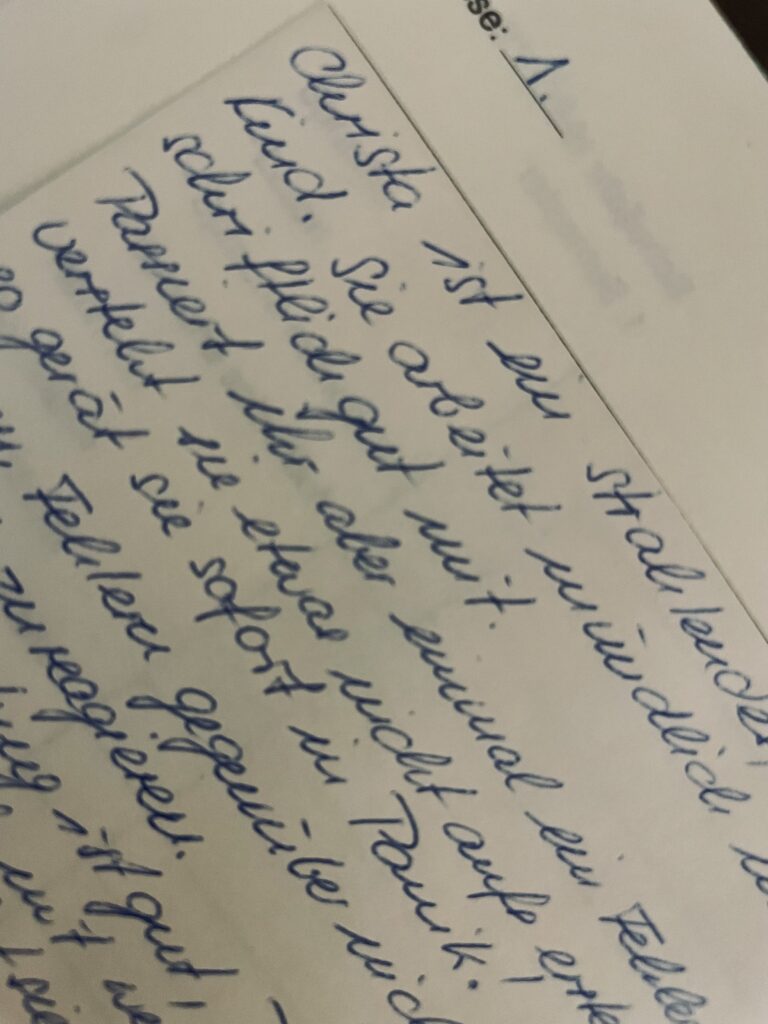 se: 1.
Christa ist ein strahlendes,
Kind. Sie arbeitet mündlich
schriftlich gut mit.
Passiert ihr aber einmal ein Fehler
versteht sie etwas nicht aufs erste
so gerät sie sofort in Panik.
Fehlern gegenüber nich
zu reagieren.
ist gut!
mit
sie